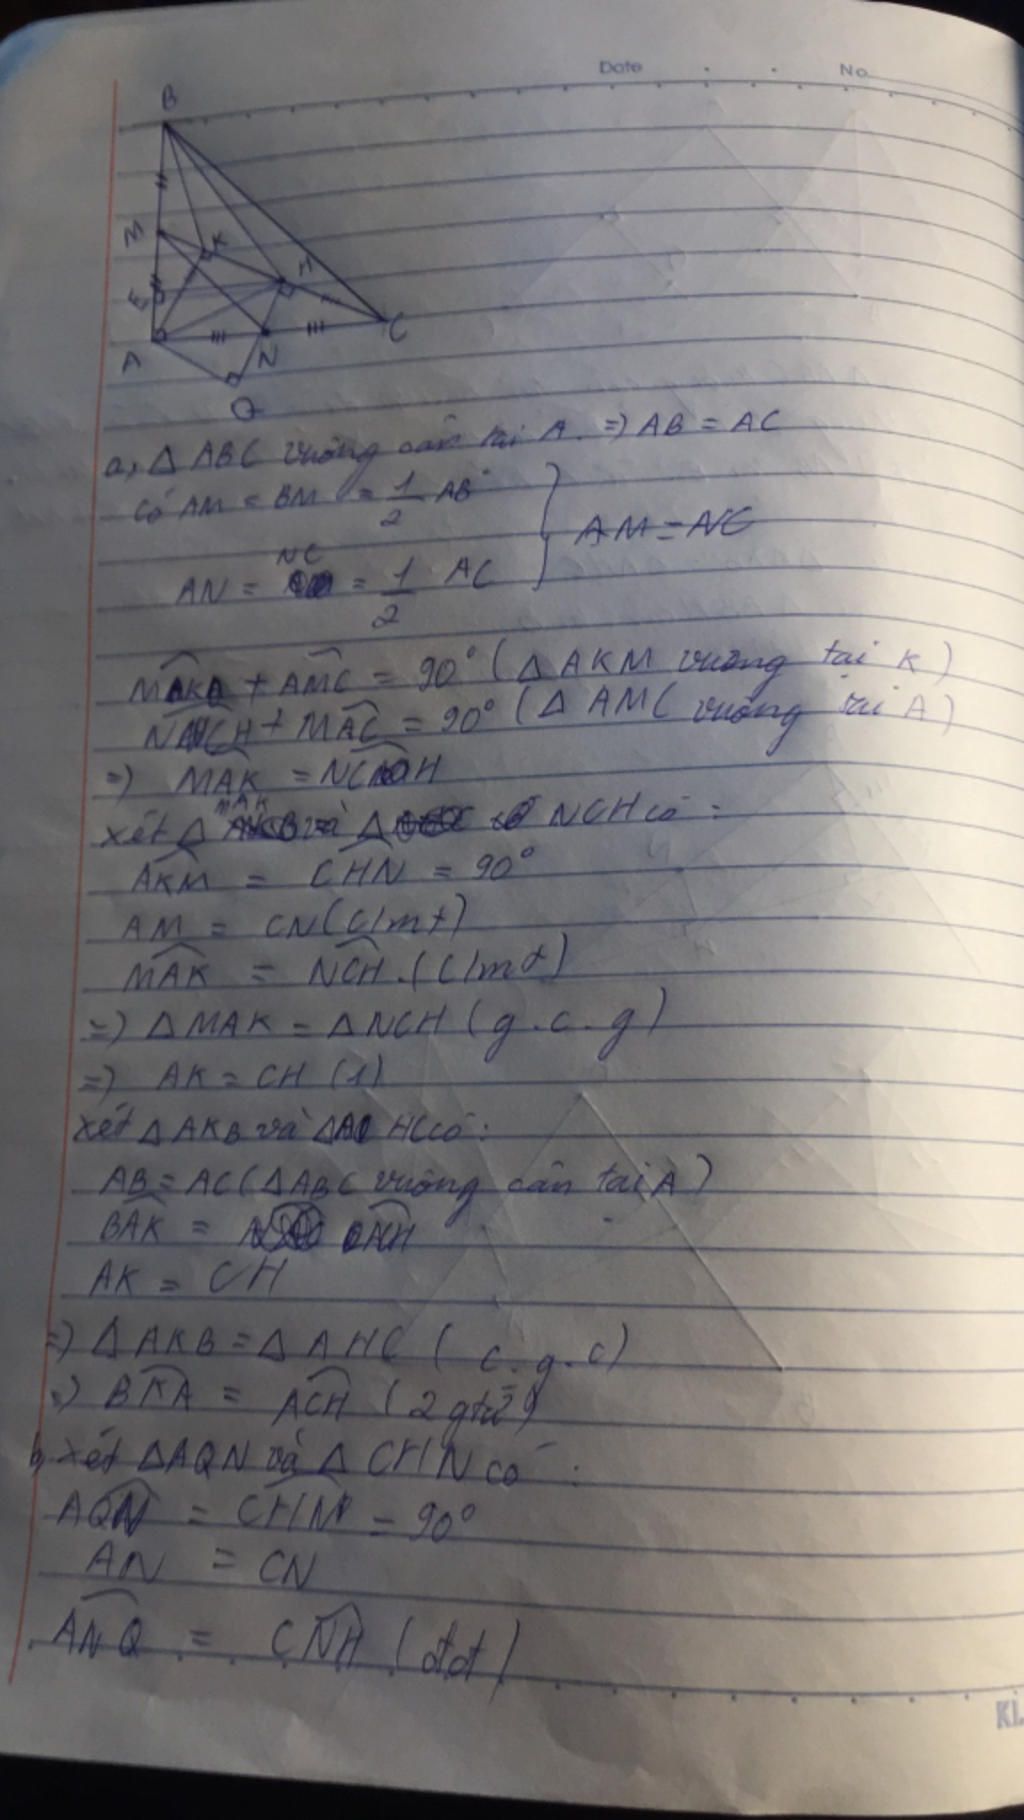 Date No
B
M
K
E
H
A
N
C
Q
a, Δ ABC vuông cân tại A. => AB = AC
Có AM = BM = 1/2 AB
AM = NC
NC
AN = = 1/2 AC
+ AMC = 90° (Δ AKM vuông tại K)
+ MAC = 90° (Δ AMC vuông tại A)
=) MAK = NCH
MAK
Xét Δ Δ NCH có :
AKM = CHN = 90°
AM = CN (C/mt)
MAK = NCH (C/mt)
=) Δ MAK = Δ NCH (g.c.g)
=) AK = CH (1)
Xét Δ AKB và Δ HC có :
AB = AC (Δ ABC vuông cân tại A)
BAK = ACH
AK = CH
=) Δ AKB = Δ AHC ( c.g.c)
=) BKA = ACH (2 gtứ)
b, Xét Δ AQN và Δ CHN có :
AQN = CHN = 90°
AN = CN
ANQ = CNH (đđ)